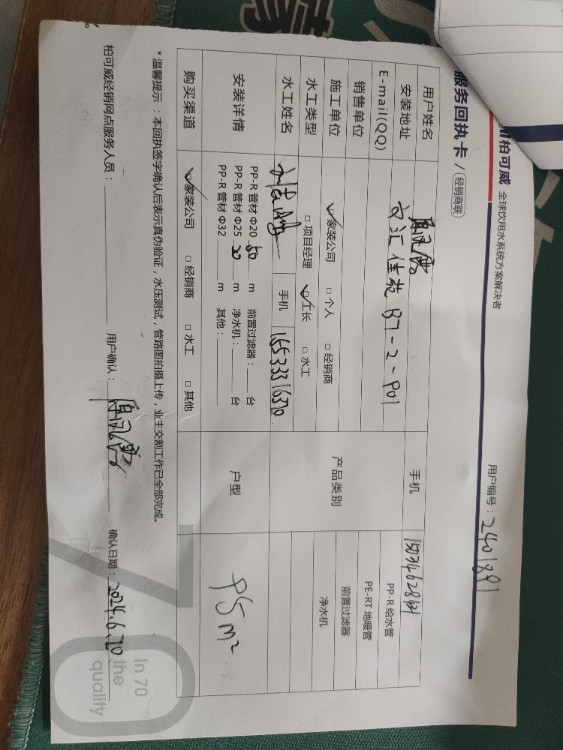 柏可威 全球饮用水系统方案解决者
服务回执卡 / 经销商联
用户编号：2401891
用户姓名 手机
安装地址 文汇佳苑 B7-2-P01
E-mail(QQ)
销售单位 产品类别 PP-R 给水管
PE-RT 地暖管
前置过滤器
净水机
施工单位 ☑家装公司 □个人 □经销商
水工类型 □项目经理 ☑工长 □水工
水工姓名 手机
安装详情 PP-R 管材 Φ20 50 m 前置过滤器： 台
PP-R 管材 Φ25 20 m 净水机： 台
PP-R 管材 Φ32 m 其他：
户型 95m²
购买渠道 ☑家装公司 □经销商 □水工 □其他
*温馨提示：本回执签字确认后表示真伪验证，水压测试，管路图拍摄上传，业主交割工作已全部完成。
柏可威经销网点服务人员： 用户确认： 确认日期：2024.6.20
In 70
the
quality